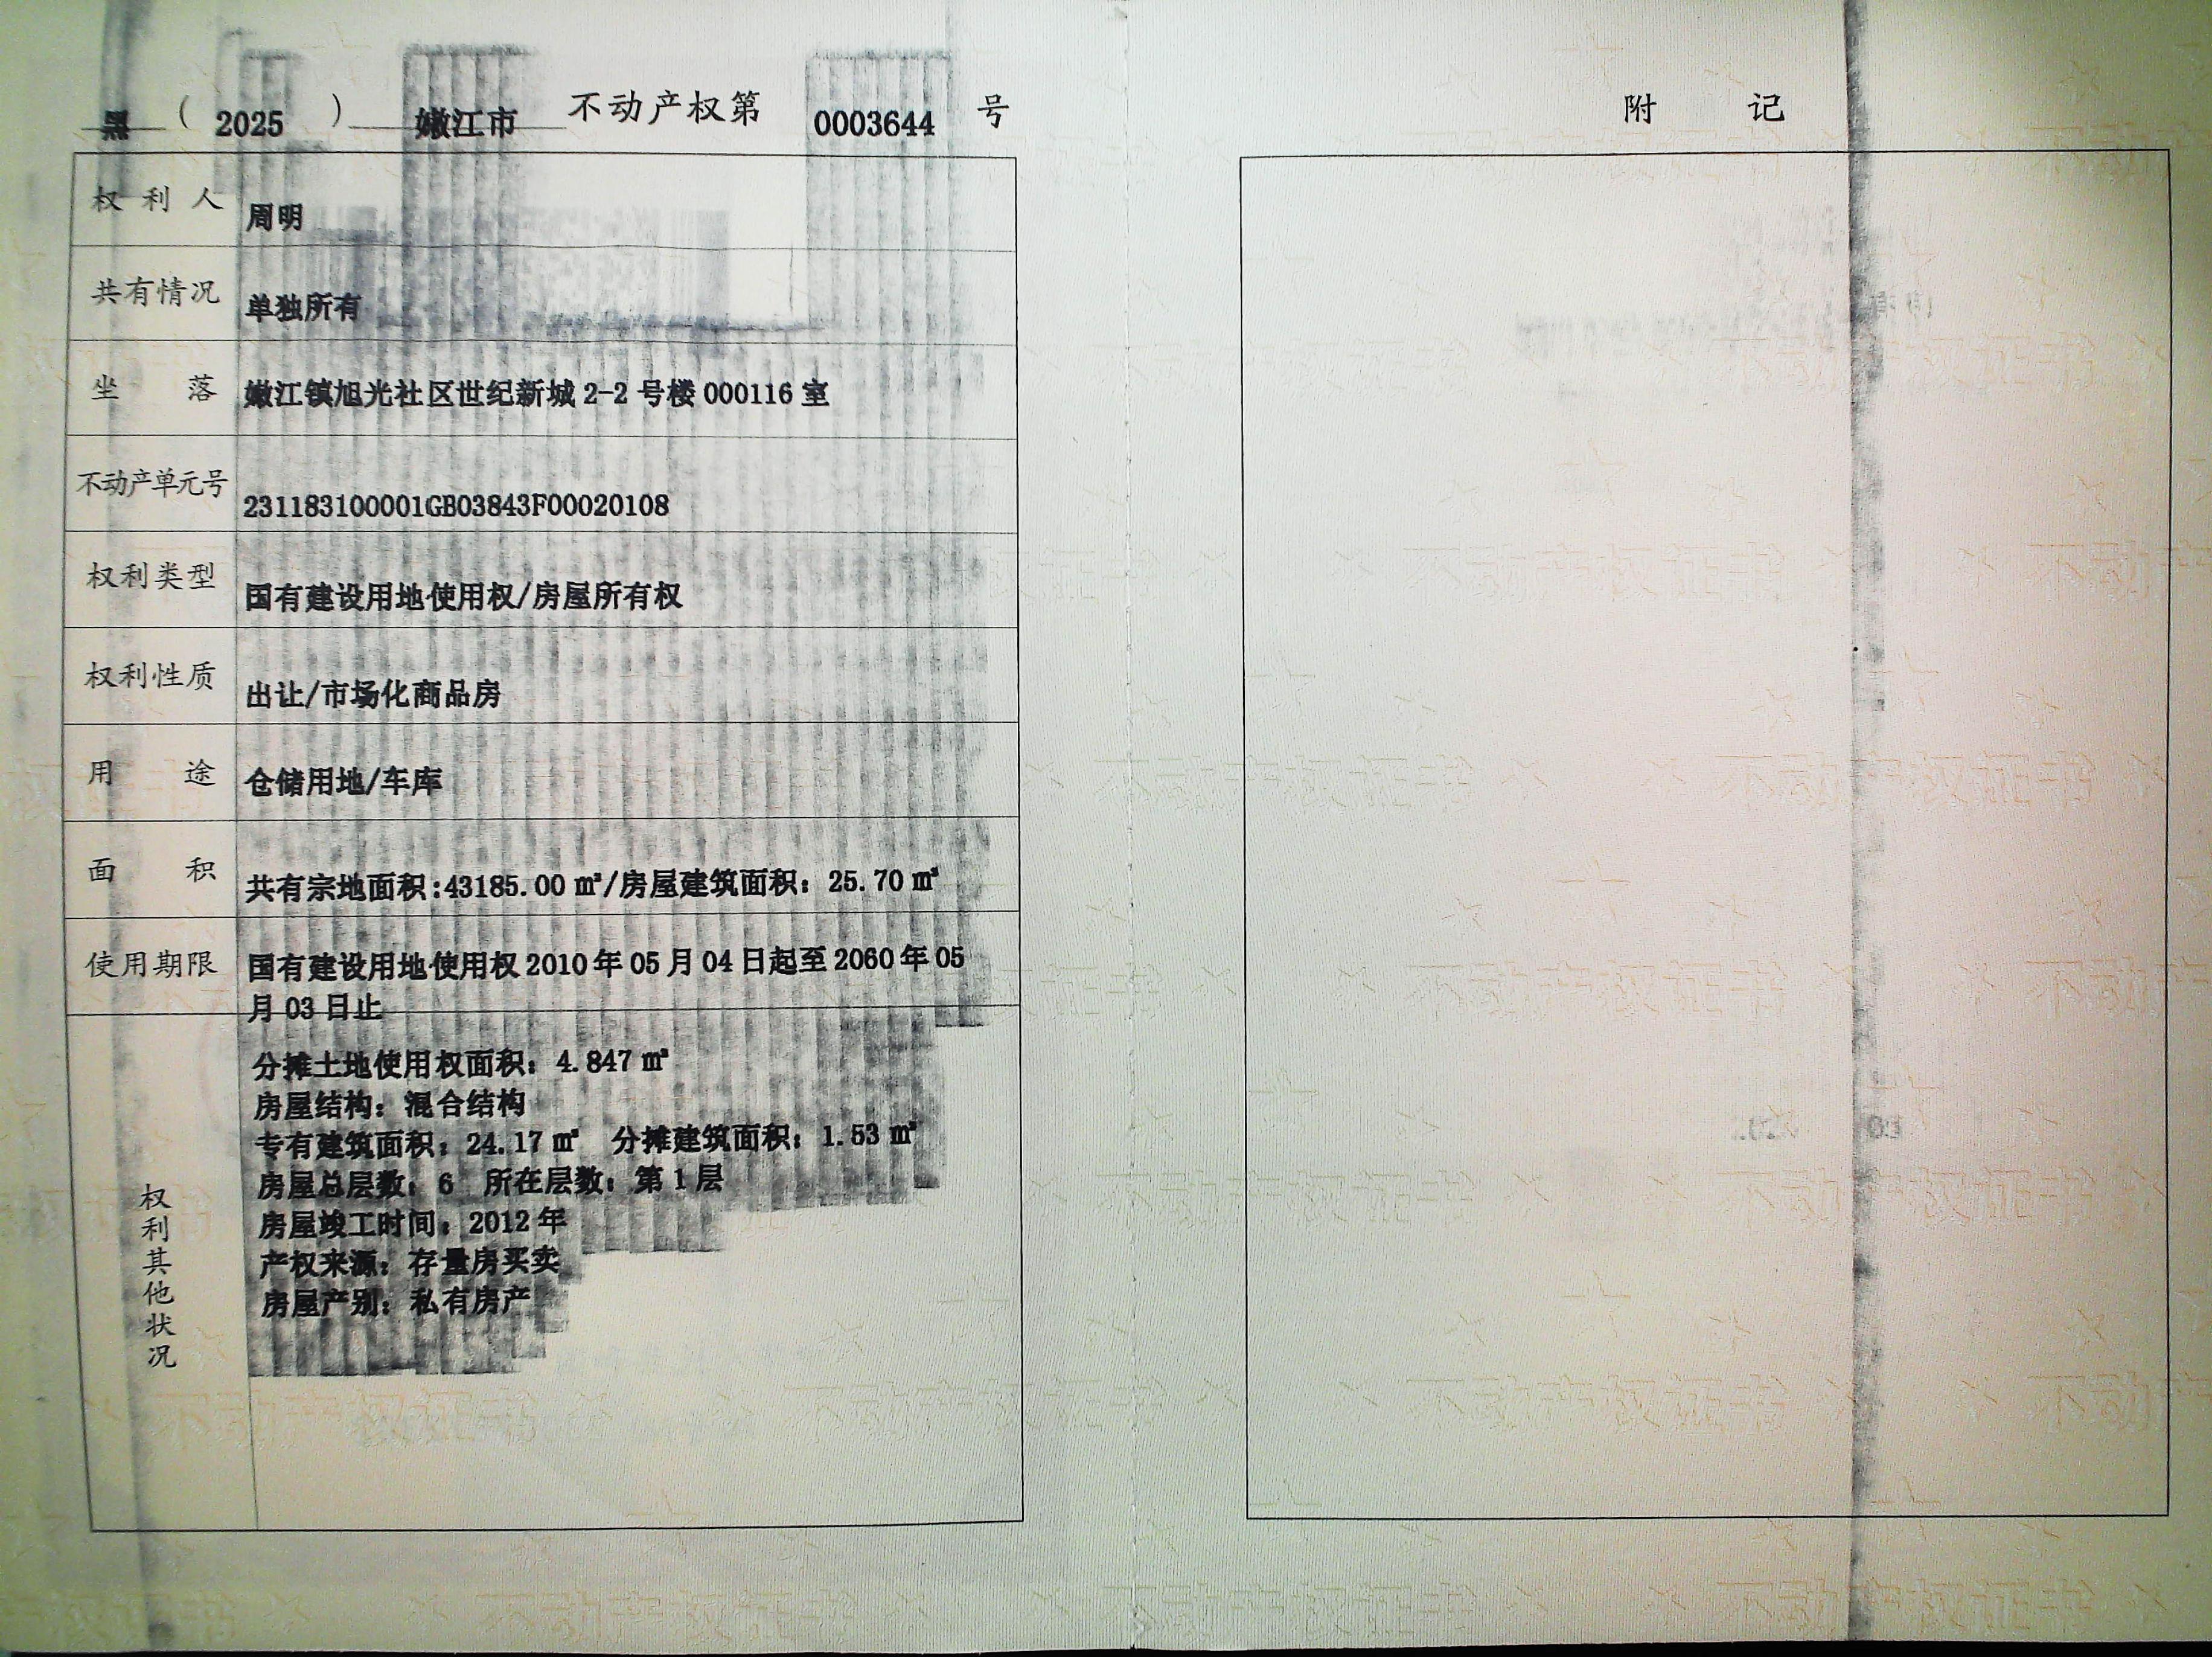 黑（2025）嫩江市不动产权第0003644号
权利人 周明
共有情况 单独所有
坐落 嫩江镇旭光社区世纪新城2-2号楼000116室
不动产单元号 231183100001GB03843F00020108
权利类型 国有建设用地使用权/房屋所有权
权利性质 出让/市场化商品房
用途 仓储用地/车库
面积 共有宗地面积:43185.00㎡/房屋建筑面积：25.70㎡
使用期限 国有建设用地使用权2010年05月04日起至2060年05
月03日止
权利其他状况
分摊土地使用权面积：4.847㎡
房屋结构：混合结构
专有建筑面积：24.17㎡ 分摊建筑面积：1.53㎡
房屋总层数：6 所在层数：第1层
房屋竣工时间：2012年
产权来源：存量房买卖
房屋产别：私有房产
附记